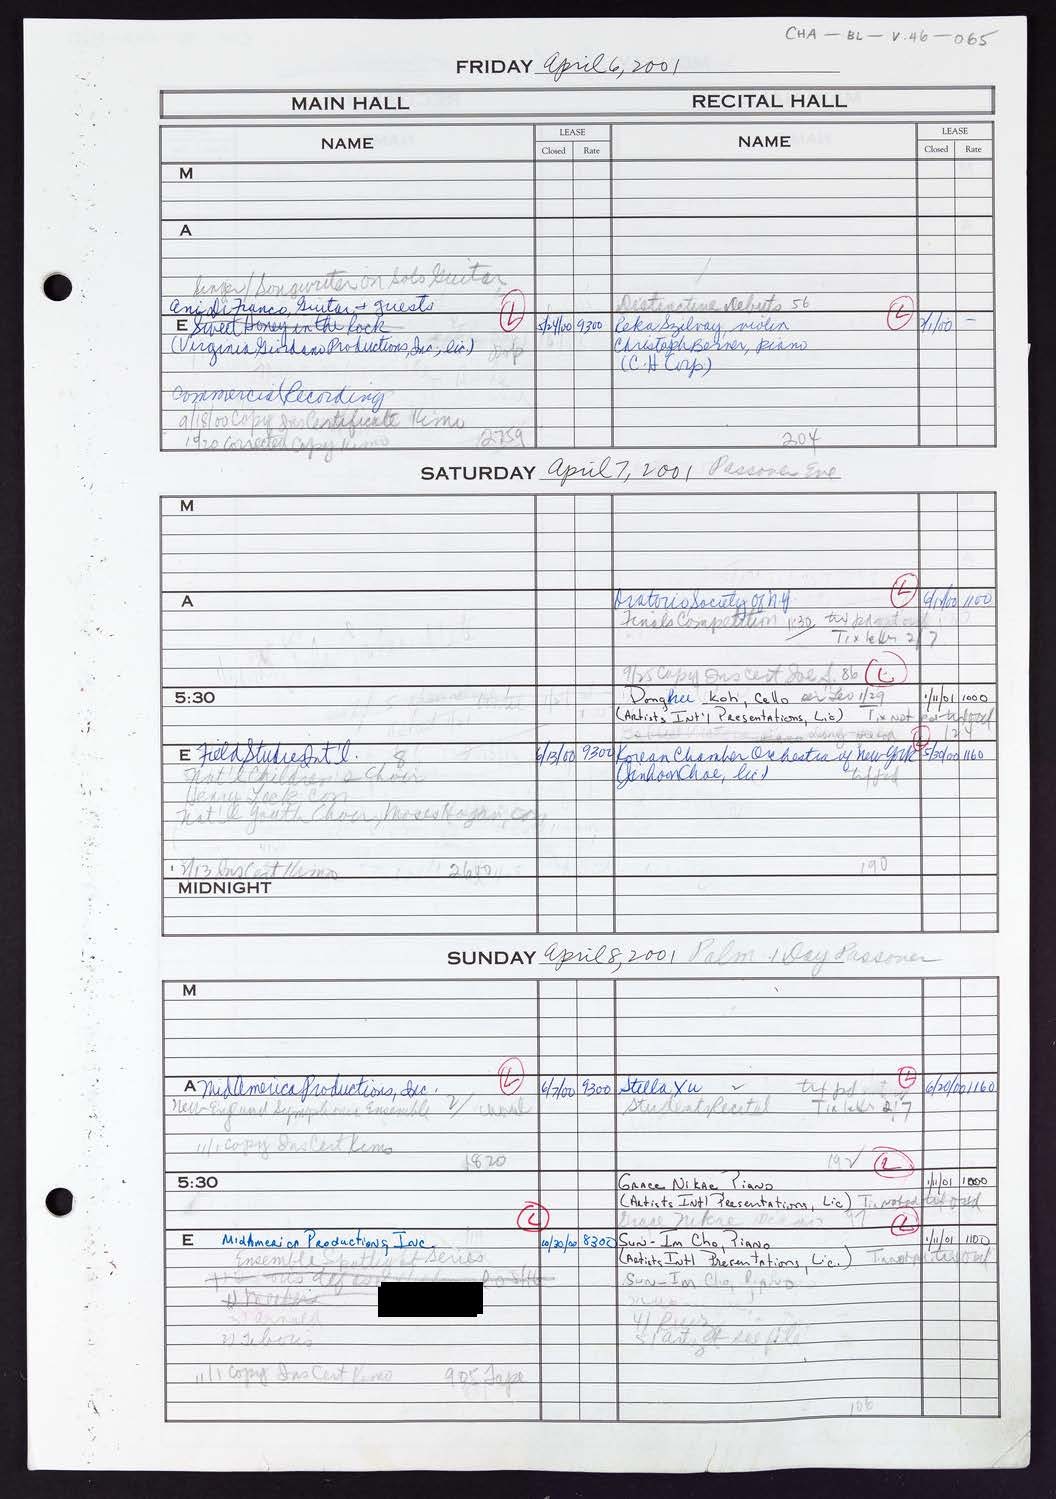 CHA – BL – V.46 – 065
FRIDAY April 6, 2001
MAIN HALL RECITAL HALL
NAME LEASE Closed Rate NAME LEASE Closed Rate
M
A
Singer/Songwriter on Solo Guitar
Ani DiFranco, Guitar + guests Distinctive Debuts 56
E Sweet Honey in the Rock L 5/24/00 9300 Reka Szilvay, violin L 7/1/00 –
(Virginia Giordano Productions, Inc., lic) Christoph Berner, piano
(C.H. Corp)
Commercial Recording
9/18/00 Copy Ins Certificate Kimo
9/20 Corrected Copy Kimo 2759 204
SATURDAY April 7, 2001 Passover Eve
M
A Oratorio Society of N.Y. L 6/12/00 1100
Finals Competition 1:30
Tix letter 2/7
9/25 Copy Ins Cert Joe S. 86 L
5:30 Donghee Koh, Cello 1/29 1/11/01 1000
(Artists Int'l Presentations, Lic) Tix Not
E Field Studies Int'l. 8 6/13/00 9300 Korean Chamber Orchestra of New York L 5/30/00 1160
Nat'l Children's Choir (Jinhoon Chae, lic)
Henry Leck Con
Nat'l Youth Choir, Moses Hogan, Con.
Ins Cert Kimo 2640 190
MIDNIGHT
SUNDAY April 8, 2001 Palm 1 Day Passover
M
A MidAmerica Productions, Inc. L 6/7/00 9300 Stella Xu L 6/20/00 1160
New England Symphonic Ensemble Student Recital Tix letter 2/7
11/1 copy Ins Cert Kimo
1820 192 L
5:30 Grace Nikae Piano 1/11/01 1000
(Artists Int'l Presentations, Lic)
L Grace Nikae L
E MidAmerica Productions, Inc. 10/30/00 8300 Sun-Im Cho, Piano 1/11/01 1100
Ensemble Spotlight Series (Artists Int'l Presentations, Lic.)
Sun-Im Cho, Piano
11/1 copy Ins Cert Kimo 905 Tape
106